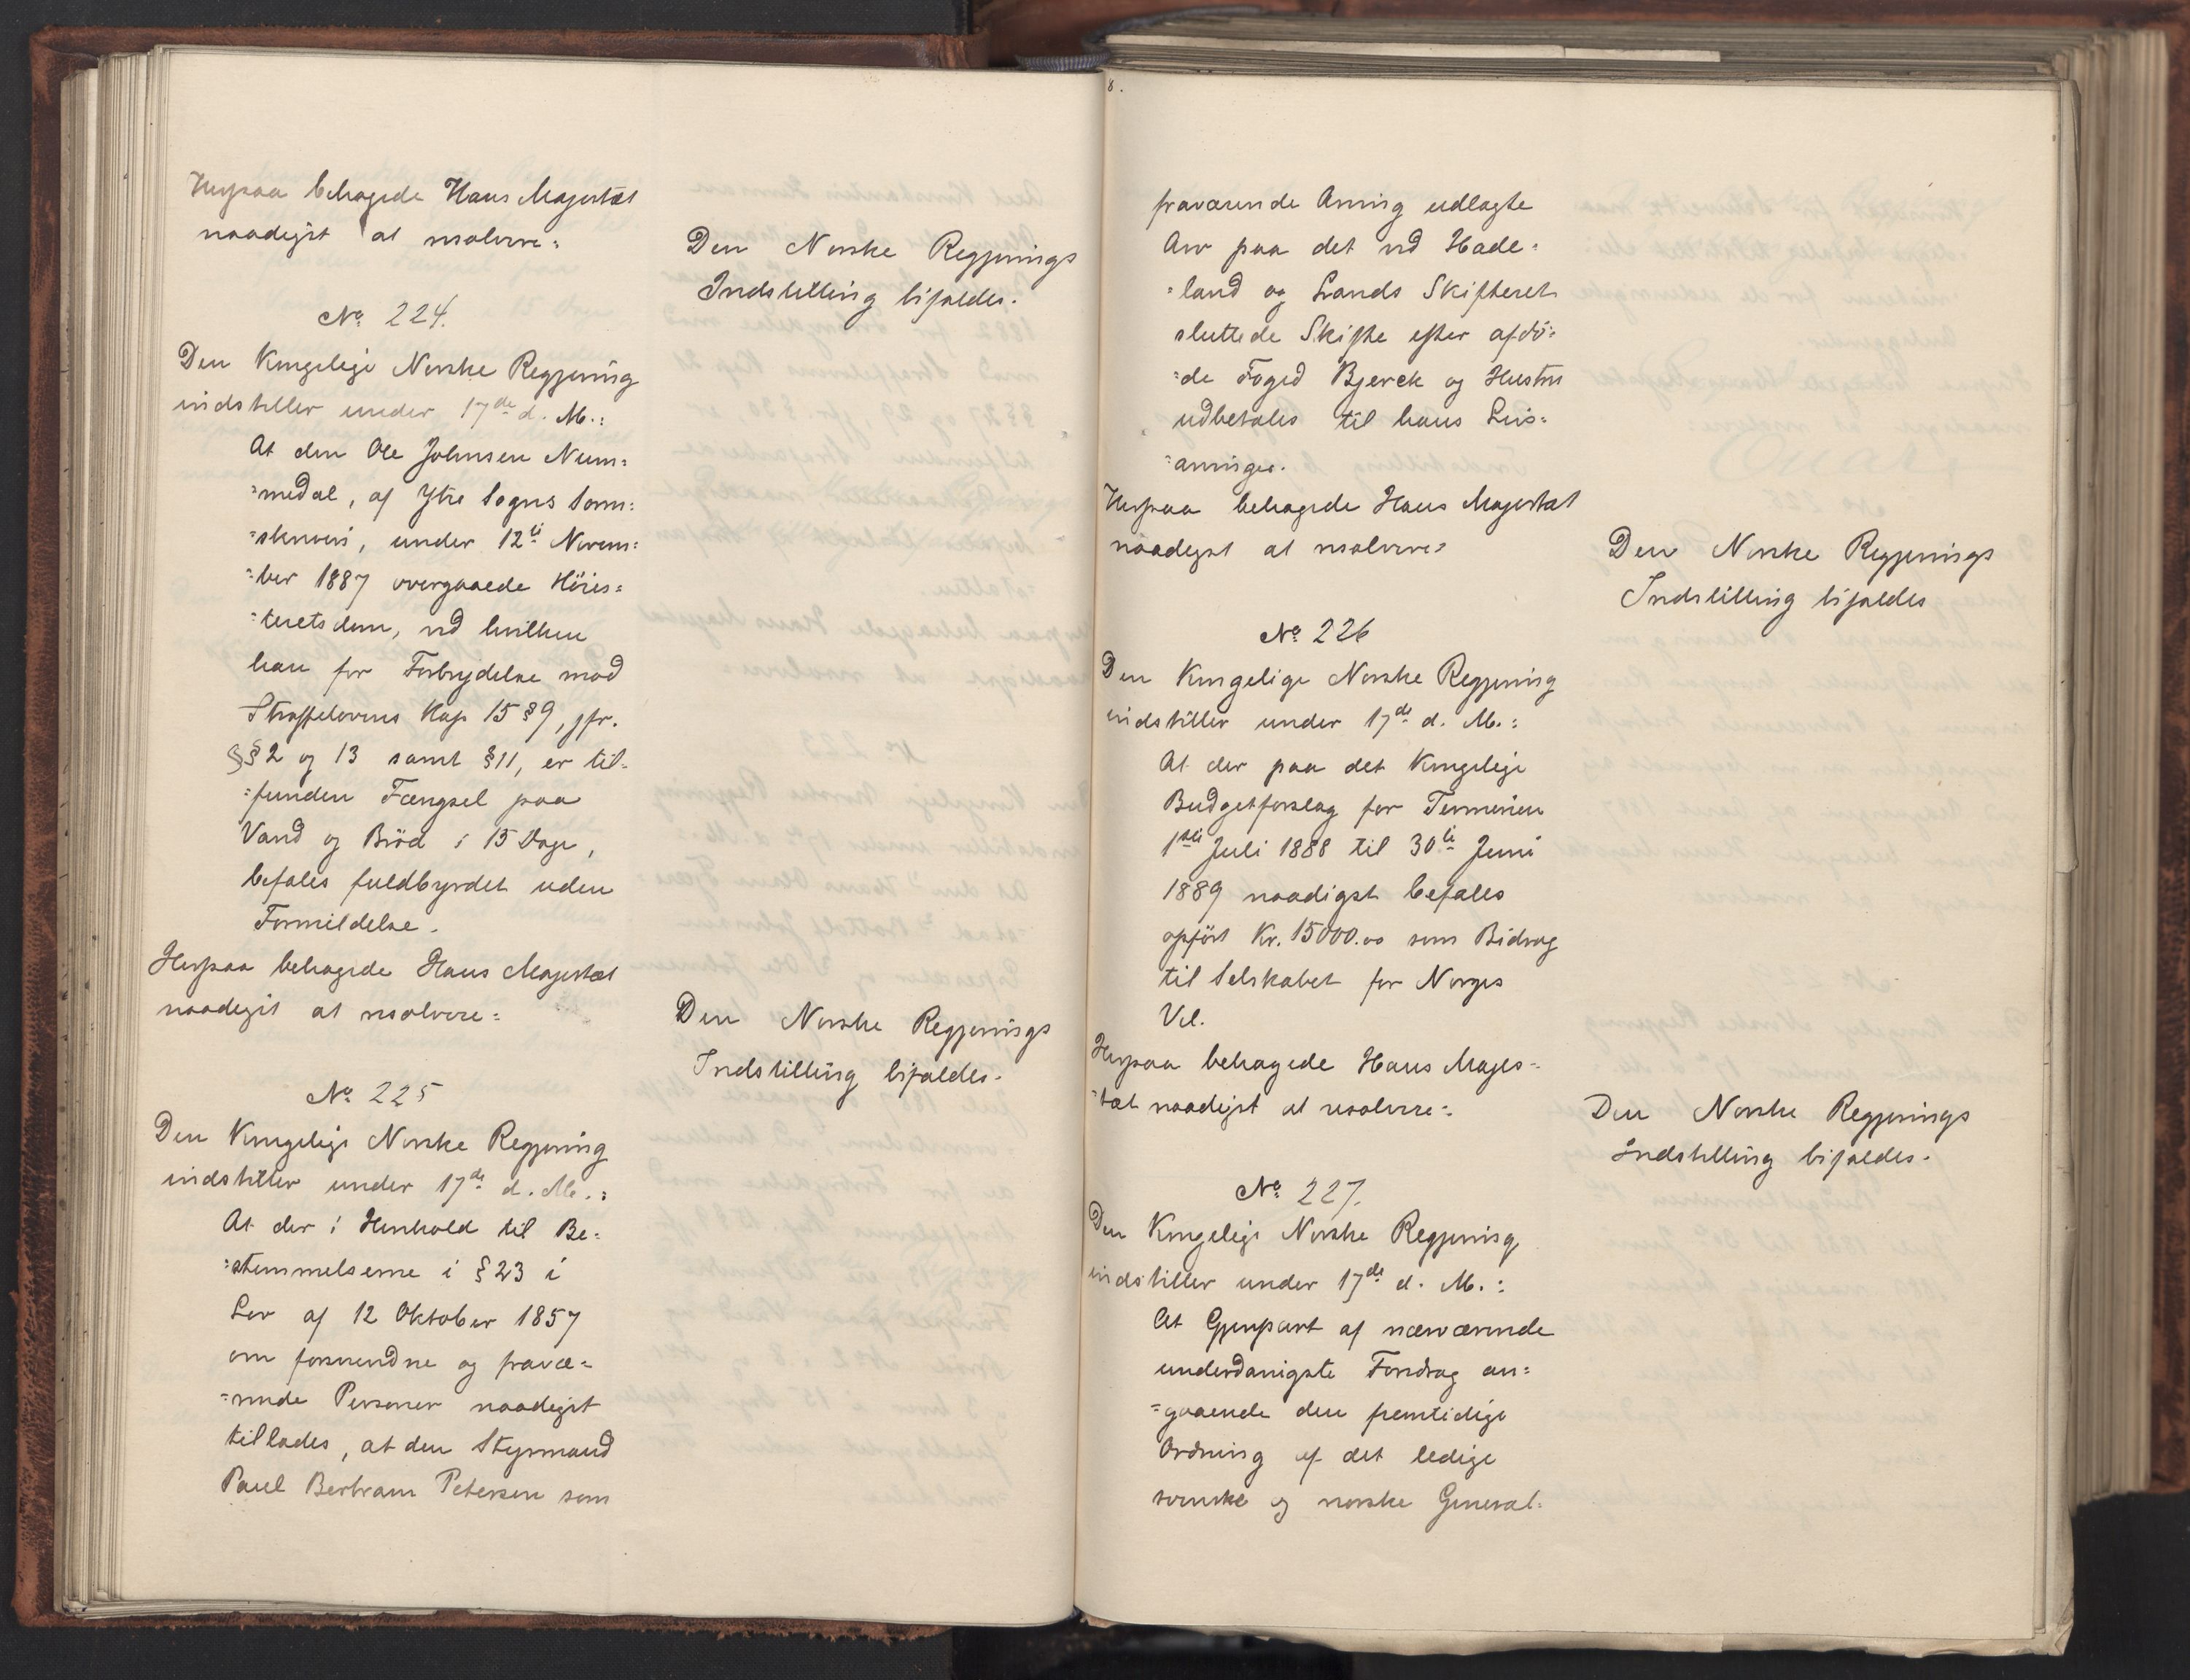 Herpaa behagede Hans Majestæt
naadigst at resolvere:
Den Norske Regjerings
Indstilling bifaldes.
No 224.
Den Kongelige Norske Regjering
indstiller under 17de d. M.:
At den Ole Johnsen Num=
=medal, af Ytre Sogns Soren=
=skriveri, under 12te Novem=
=ber 1887 overgaaede Höies=
=teretsdom, ved hvilken
han for Forbrydelse mod
Straffelovens Kap 15 § 9, jfr.
§§ 2 og 13 samt § 11, er til=
=funden Fængsel paa
Vand og Bröd i 15 Dage,
befales fuldbyrdet uden
Formildelse.
Herpaa behagede Hans Majestæt
naadigst at resolvere:
Den Norske Regjerings
Indstilling bifaldes.
No 225
Den Kongelige Norske Regjering
indstiller under 17de d. M.:
At der i Henhold til Be=
=stemmelserne i § 23 i
Lov af 12 Oktober 1857
om forsvundne og fravæ=
=rende Personer naadigst
tillades, at den Styrmand
Paul Bertram Petersen som
8.
fraværende Arving udlagte
Arv paa det ved Hade=
=land og Lands Skifteret
sluttede Skifte efter afdö=
=de Foged Bjerck og Hustru
udbetales til hans Livs=
=arvinger.
Herpaa behagede Hans Majestæt
naadigst at resolvere:
Den Norske Regjerings
Indstilling bifaldes
No 226
Den Kongelige Norske Regjering
indstiller under 17de d. M.:
At der paa det Kongelige
Budgetforslag for Terminen
1ste Juli 1888 til 30te Juni
1889 naadigst befales
opfört Kr. 15000.00 som Bidrag
til Selskabet for Norges
Vel.
Herpaa behagede Hans Majes=
=tæt naadigst at resolvere:
Den Norske Regjerings
Indstilling bifaldes.
No 227.
Den Kongelige Norske Regjering
indstiller under 17de d. M.:
At Gjenpart af nærværende
underdanigste Foredrag an=
=gaaende den fremtidige
Ordning af det ledige
svenske og norske General=